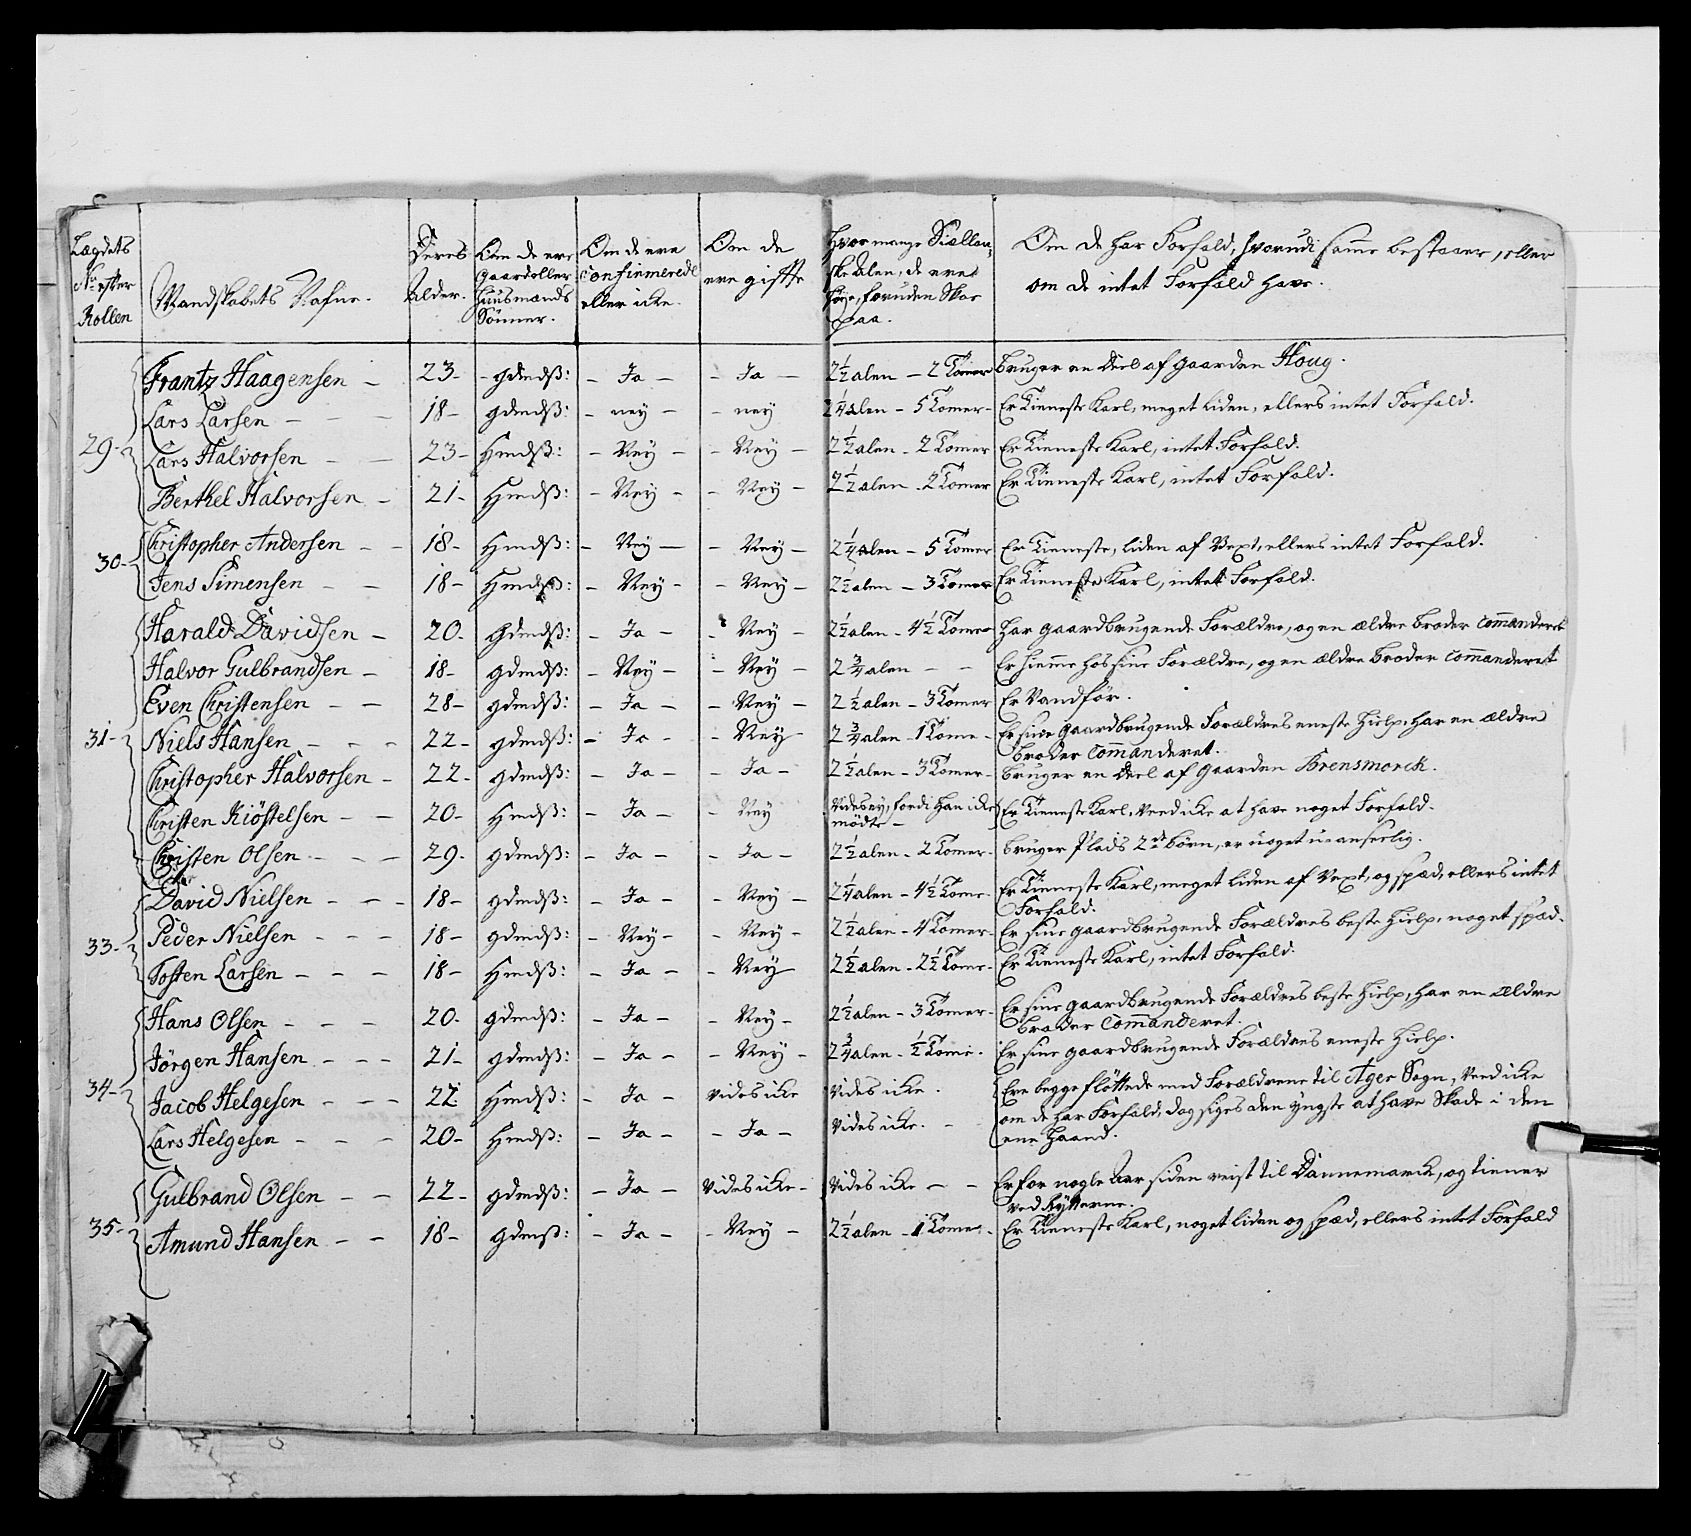 Lægdets No efter Rollen | Mandskabets Nafne. | Deres Alder. | Om de ere Gaard eller Huusmænds Sönner. | Om de ere Confirmerede eller icke. | Om de ere gifte | Hvor mange Siællandske Alen, de ere höye, foruden Skoe paa. | Om de har Forfald, hvorudi samme bestaaer, eller om de intet Forfald have.
Frantz Haagensen – | 23– | – gdmdß: | – Ja – | – Ja – | 2½ alen – 2 Tomer | bruger en Deel af gaarden Houg.
Lars Larsen – – | 18– | gdmdß: | – ney – | – ney | 2¼ alen – 5 Tomer – | Er Tieneste Karl, meget liden, ellers intet Forfald.
29– Lars Halvorsen – – | 23– | Hmdß: | – Ney – | – Ney – | 2½ alen – 2 Tomer | Er Tieneste Karl, intet Forfald.
Berthel Halvorsen – | 21– | Hmdß: | – Ney – | – Ney – | 2½ alen – 2 Tomer | Er Tieneste Karl, intet Forfald.
Christopher Andersen – – | 18– | Hmdß: | – Ney – | – Ney – | 2¼ alen – 5 Tomer | Er Tieneste, liden af Vext, ellers intet Forfald.
30– Jens Simensen – – | 18– | Hmdß: | – Ney – | – Ney – | 2½ alen – 3 Tomer | Er Tieneste Karl, intet Forfald.
Harald Davidsen – | 20– | gdmdß: | – Ja – | – Ney – | 2½ alen – 4½ Tomer | har gaardbrugende Forældre, og en ældre broder Commanderet
Halvor Gulbrandsen – | 18– | gdmdß: | – Ney – | – Ney – | 2¾ alen – – | Er hiemme hos sine Forældre, og en ældre broder Commanderet
Even Christensen – – | 28– | gdmdß: | – Ja – | – Ney – | 2½ alen – 3 Tomer | Er Vandför.
31– Niels Hansen – – – | 22– | gdmdß: | – Ja – | – Ney – | 2¾ alen – 1 Tome – | Er sine gaardbrugende Forældres eneste hielp, har en ældre
broder Commanderet.
Christopher Halvorsen – | 22– | gdmdß: | – Ja – | – Ja – | 2½ alen – 3 Tomer – | bruger en Deel af gaarden Brensmorck.
Christen Kiöstelsen – – | 20– | Hmdß: | – Ja – | – Ney | Vides ey, fordi han icke mödte – | Er Tieneste Karl, Veed icke at have noget Forfald.
Christen Olsen – – – | 29– | gdmdß: | – Ja – | – Ja – | 2½ alen – 2 Tomer – | bruger Plads 2de börn, er noget uanseelig.
David Nielsen – – – | 18– | gdmdß: | – Ja – | – Ney – | 2¼ alen – 4½ Tome – | Er Tieneste Karl, meget liden af Vext, og spæd, ellers intet
Forfald.
33– Peder Nielsen – – – | 18– | gdmdß: | – Ney – | – Ney – | 2½ alen – 4 Tomer – | Er sine gaardbrugende Forældres beste hielp, noget spæd.
Tosten Larsen – – – | 18– | Hmdß: | – Ja – | – Ney – | 2½ alen – 2½ Tome – | Er Tieneste Karl, intet Forfald.
Hans Olsen – – – | 20– | gdmdß: | – Ja – | – Ney – | 2½ alen – 3 Tomer – | Er sine gaardbrugende Forældres beste hielp, har en ældre
broder Commanderet.
Jörgen Hansen – – – | 21– | gdmdß: | – Ja – | – Ney – | 2¾ alen – ½ Tome – | Er sine gaardbrugende Forældres eneste hielp.
34– Jacob Helgesen – – – | 22 | Hmdß: | – Ja – | Vides icke | Vides icke – | Ere begge flöttede med Forældrene til Ager Sogn, Veed icke
Lars Helgesen – – – | 20– | Hmdß: | – Ja – | – Ja – | Vides icke. – | om de har Forfald, dog siges den yngste at have Skade i den
ene haand.
Gulbrand Olsen – – | 22– | gdmdß: | – Ja – | Vides icke – | Vides icke – – | Er for nogle Aar siden reist til Dannemarck, og tiener
ved Rytterne.
35– Amund Hansen – – | 18– | gdmß: | – Ja – | – Ney – | 2½ alen – 1 Tome – | Er Tieneste Karl, noget liden og spæd, ellers intet Forfald